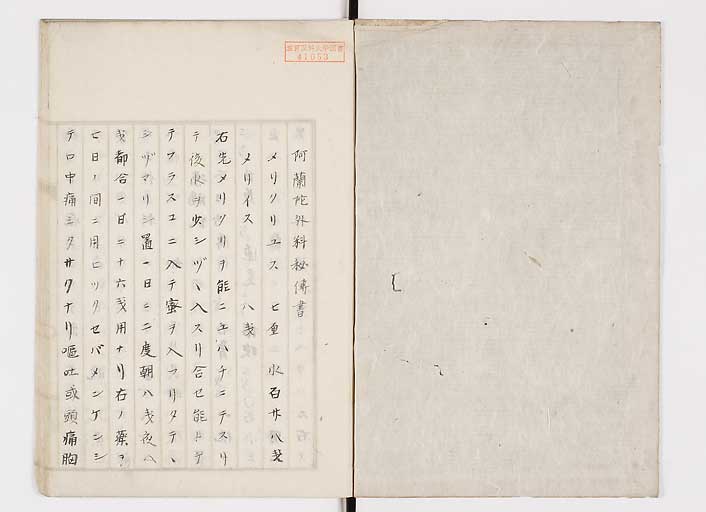 阿蘭陀外科秘傳書
メリクリユス 七重 水百廿八戔
メリイス 八戔
右先メリクリヲ能ニユハチニテスリ
テ後水ヲ少シヅヽ入スリ合セ能トテ
テフラスコニ入テ蜜ヲ入フリタテヽ
シヅマリ置一日ニ二度朝八戔夜八
戔都合一日ニ十六戔用ナリ右ノ藥ヲ
七日ノ間ニ用ヒツクセバメンケンシ
テ口中痛ミタサクナリ嘔吐或頭痛胸
東京医科大学図書
41053